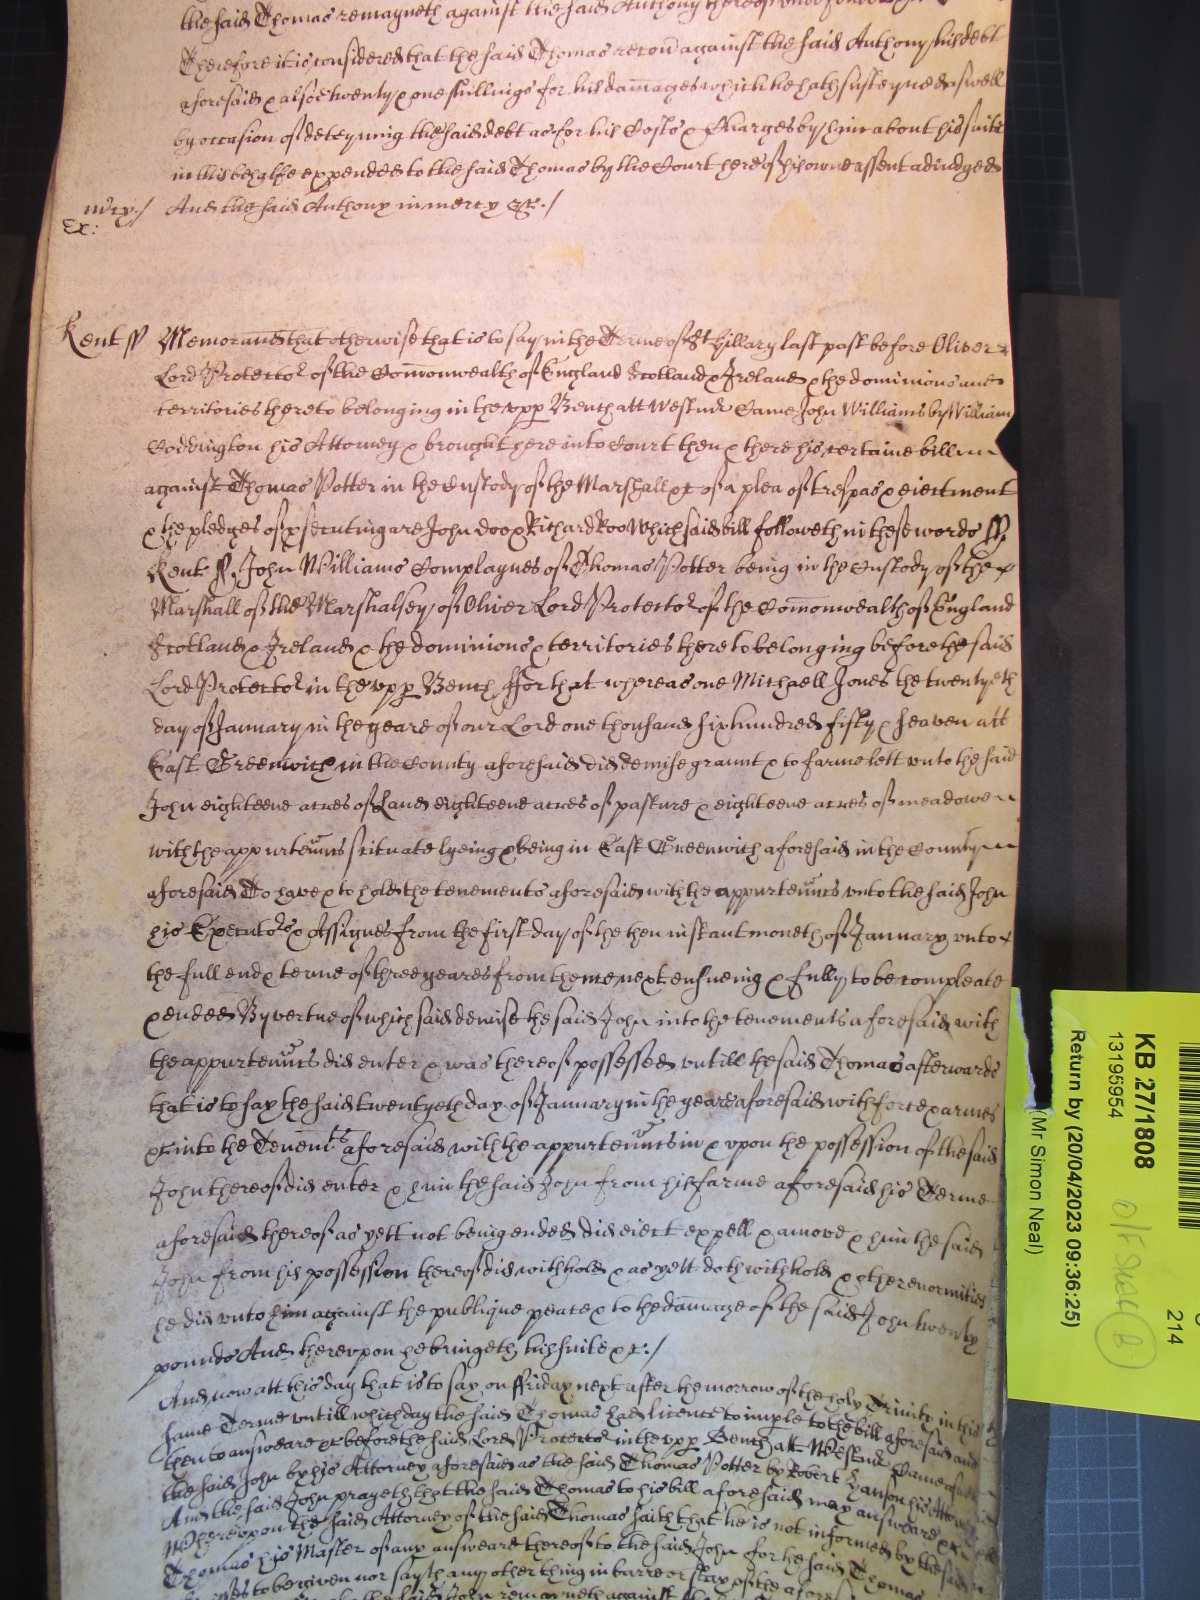 the said Thomas remayneth against the said Anthony thereof
Therefore it is considered that the said Thomas recov against the said Anthony his debt
aforesaid & alsoe twenty & one shillings for his damages which he hath susteyned aswell
by occasion of deteyning the said debt as for his Costs & Charges by him about his suite
in this behalfe expended to the said Thomas by the Court here of his owne assent adiudged
And the said Anthony in mercy &c. /
mcy. /
Ex:
Kent ss Memorand that otherwise that is to say in the Terme of St Hillary last past before Oliver
Lord Protector of the Comonwealth of England Scotland & Ireland & the dominions and
territories thereto belonging in the upp Bench att Westmr Came John Williams by William
Coddington his Attorney & brought here into Court then & there his certaine bill
against Thomas Potter in the Custody of the Marshall &c of a plea of trespas & eiectment
& the pledges of psecuting are John doo & Richard Roo Which said bill followeth in these words ss
Kent ss John Williams Complaynes of Thomas Potter being in the Custody of the
Marshall of the Marshalsey of Oliver Lord Protector of the Comonwealth of England
Scotland & Ireland & the dominions & territories thereto belonging before the said
Lord Protector in the upp Bench ffor that whereas one Michaell Jones the twentyeth
day of January in the yeare of our Lord one thousand six hundred fifty & seaven att
East Greenwich in the County aforesaid did demise graunt & to farme lett unto the said
John eighteene acres of Land eighteene acres of pasture & eighteene acres of meadowe
with the appurtenncs scituate lyeing & being in East Greenwich aforesaid in the County
aforesaid To have & to hold the tenements aforesaid with the appurtenncs unto the said John
his Executors & Assignes from the first day of the then instant moneth of January unto
the full end & terme of three yeares from thence next ensueing & fully to be compleate
& ended By vertue of which said demise the said John into the tenements aforesaid with
the appurtenncs did enter & was thereof possessed untill the said Thomas afterwards
that is to say the said twentyeth day of January in the yeare aforesaid with force & armes
&c into the Tenemts aforesaid with the appurtenncs in & upon the possession of the said
John thereof did enter & him the said John from his farme aforesaid his Terme
aforesaid thereof as yett not being ended did eiect expell & amove & him the said
John from his possession thereof did withhold & as yett doth withhold & other enormities
he did unto him against the publique peace & to the damage of the said John twenty
pounds And thereupon he bringeth his suite &c. /
And now att this day that is to say on ffriday next after the morrow of the holy Trinity in this
same Terme untill which day the said Thomas had licence to imple to the bill aforesaid and
then to answeare &c before the said Lord Protector in the upp Bench att Westmr Came as well
the said John by his Attorney aforesaid as the said Thomas Potter by Robert Hanson his Attorney
And the said John prayeth that the said Thomas to his bill aforesaid may answeare &c
Whereupon the said Attorney of the said Thomas saith that he is not informed by the said
Thomas his Master of any answeare thereof to the said John for he said Thomas
to be given nor sayth any other thing in barre or stay of the
the said John remayneth against
KB 27/1808
13195954
Return by (20/04/2023 09:36:25)
(Mr Simon Neal)
214